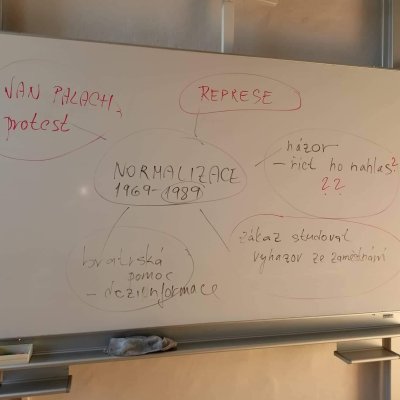 JAN PALACH,
protest
REPRESE
NORMALIZACE
1969-1989
názor
- říct ho nahlas?
??
bratrská
pomoc
- dezinformace
zákaz studovat
vyhazov ze zaměstnání